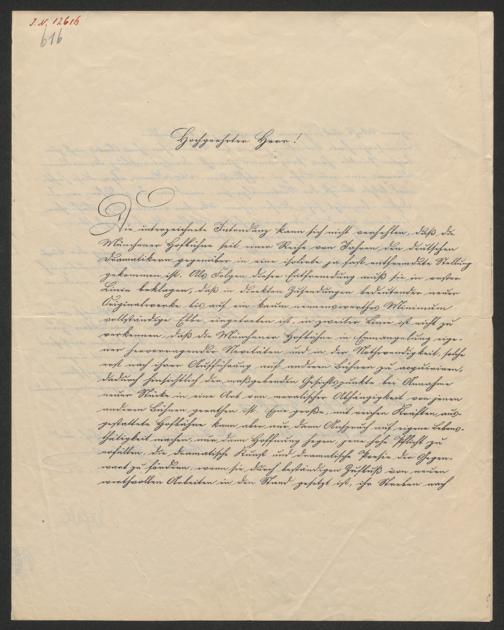 I.N. 12616
616
Hochgeehrter Herr!
Die unterzeichnete Intendanz kann sich nicht verhehlen, daß die
Münchener Hofbühne seit einer Reihe von Jahren den deutschen
Dramatikern gegenüber in eine isolirte ja fast entfremdete Stellung
gekommen ist. Als Folgen dieser Entfremdung muß sie in erster
Linie beklagen, daß in direkten Zusendungen bedeutender neuer
Originalwerke bis auf ein kaum nennenswerthes Minimum
vollständige Ebbe eingetreten ist, in zweiter Linie ist nicht zu
verkennen, daß die Münchener Hofbühne in Ermangelung eige-
ner hervorragender Novitäten und in der Nothwendigkeit, solche
erst nach ihrer Aufführung auf andern Bühnen zu acquiriren,
dadurch hinsichtlich der maßgebenden Gesichtspunkte bei Annahme
neuer Stücke in eine Art von moralischer Abhängigkeit von jenen
anderen Bühnen gerathen ist. Eine große, mit reichen Kräften aus-
gestattete Hofbühne kann aber nur dann Anspruch auf eigene Lebens-
thätigkeit machen, nur dann Hoffnung hegen, jene hohe Pflicht zu
erfüllen, die dramatische Kunst und dramatische Poesie der Gegen-
wart zu fördern, wenn sie durch beständigen Zufluß von neuen
werthvollen Arbeiten in den Stand gesetzt ist, ihr Streben nach